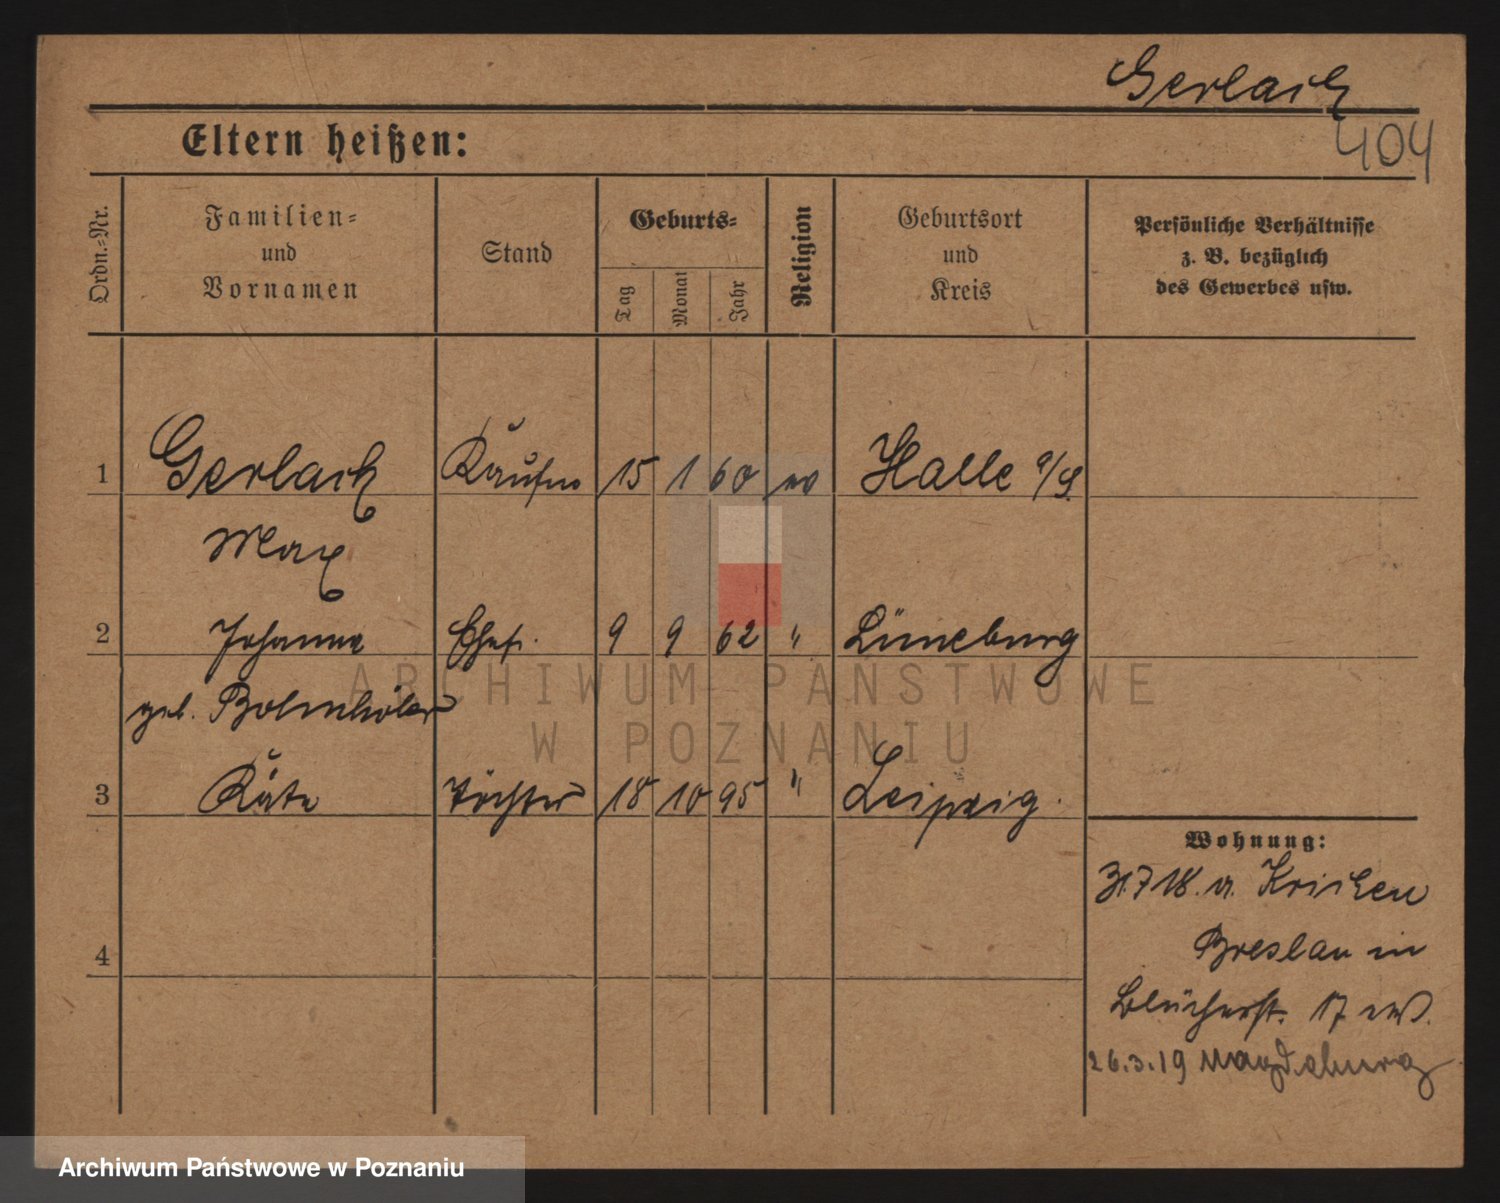 Gerlach
404
Eltern heißen:
Ordn.-Nr.
Familien-
und
Vornamen
Stand
Geburts-
Tag
Monat
Jahr
Religion
Geburtsort
und
Kreis
Persönliche Verhältnisse
z. B. bezüglich
des Gewerbes usw.
1 Gerlach Kaufm 15 1 60 ev Halle a/S.
Max
2 Johanna Ehefr. 9 9 62 " Lüneburg
geb.
3 Käte Tochter 18 10 95 " Leipzig.
Wohnung:
31.7 18. v.
Breslau
4
Blücherst. 17
26.3.19 Magdeburg
ARCHIWUM PAŃSTWOWE
W POZNANIU
Archiwum Państwowe w Poznaniu